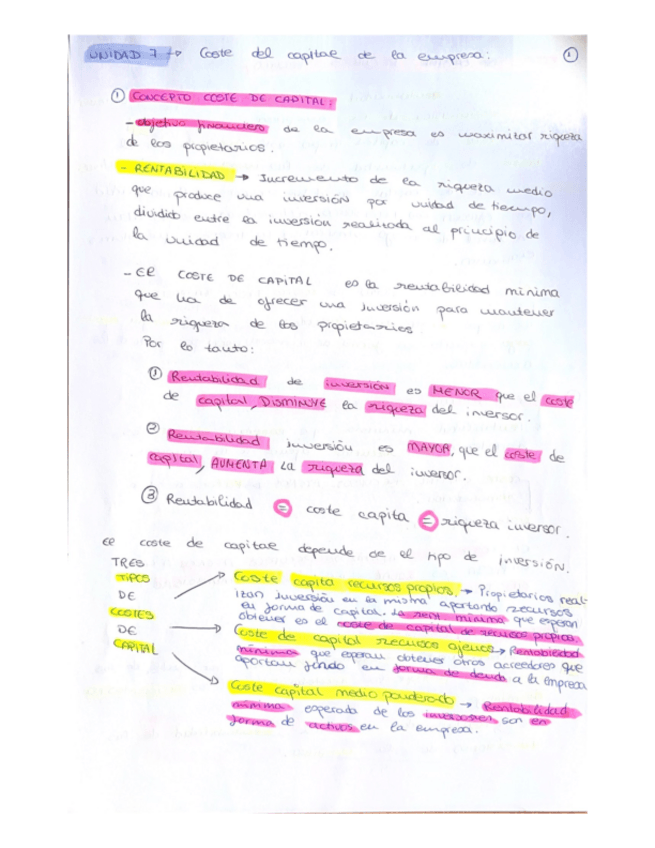 UNIDAD 7 → Coste del capital de la empresa: 1
① CONCEPTO COSTE DE CAPITAL:
- objetivo financiero de la empresa es maximizar riqueza
de los propietarios.
- RENTABILIDAD → Incremento de la riqueza medio
que produce una inversión por unidad de tiempo,
dividido entre la inversión realizada al principio de
la unidad de tiempo.
- El COSTE DE CAPITAL es la rentabilidad mínima
que ha de ofrecer una inversión para mantener
la riqueza de los propietarios.
Por lo tanto:
① Rentabilidad de inversión es MENOR que el coste
de capital, DISMINUYE la riqueza del inversor.
② Rentabilidad inversión es MAYOR, que el coste de
capital, AUMENTA la riqueza del inversor.
③ Rentabilidad = coste capital = riqueza inversor.
el coste de capital depende de el tipo de inversión.
TRES
TIPOS
DE
COSTES
DE
CAPITAL
Coste capital recursos propios, → Propietarios real-
izan inversión en la misma aportando recursos
en forma de capital. la rent mínima que esperan
obtener es el coste de capital de recursos propios.
Coste de capital recursos ajenos → Rentabilidad
mínima que esperan obtener otros acreedores que
aportan fondo en forma de deuda a la empresa
Coste capital medio ponderado → Rentabilidad
mínima esperada de las inversiones son en
forma de activos en la empresa.